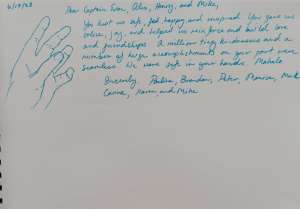 6/19/23
Dear Captain Tom, Alex, Henry, and Mike,
You kept us safe, fed, happy and inspired. You gave us
solace, joy, and helped us reinforce and build love
and friendships. A million tiny kindnesses and a
number of large accomplishments on your part were
seamless. We were safe in your hands. Mahalo
Sincerely, Brandon, Peter, Mark
Karen, and Mike